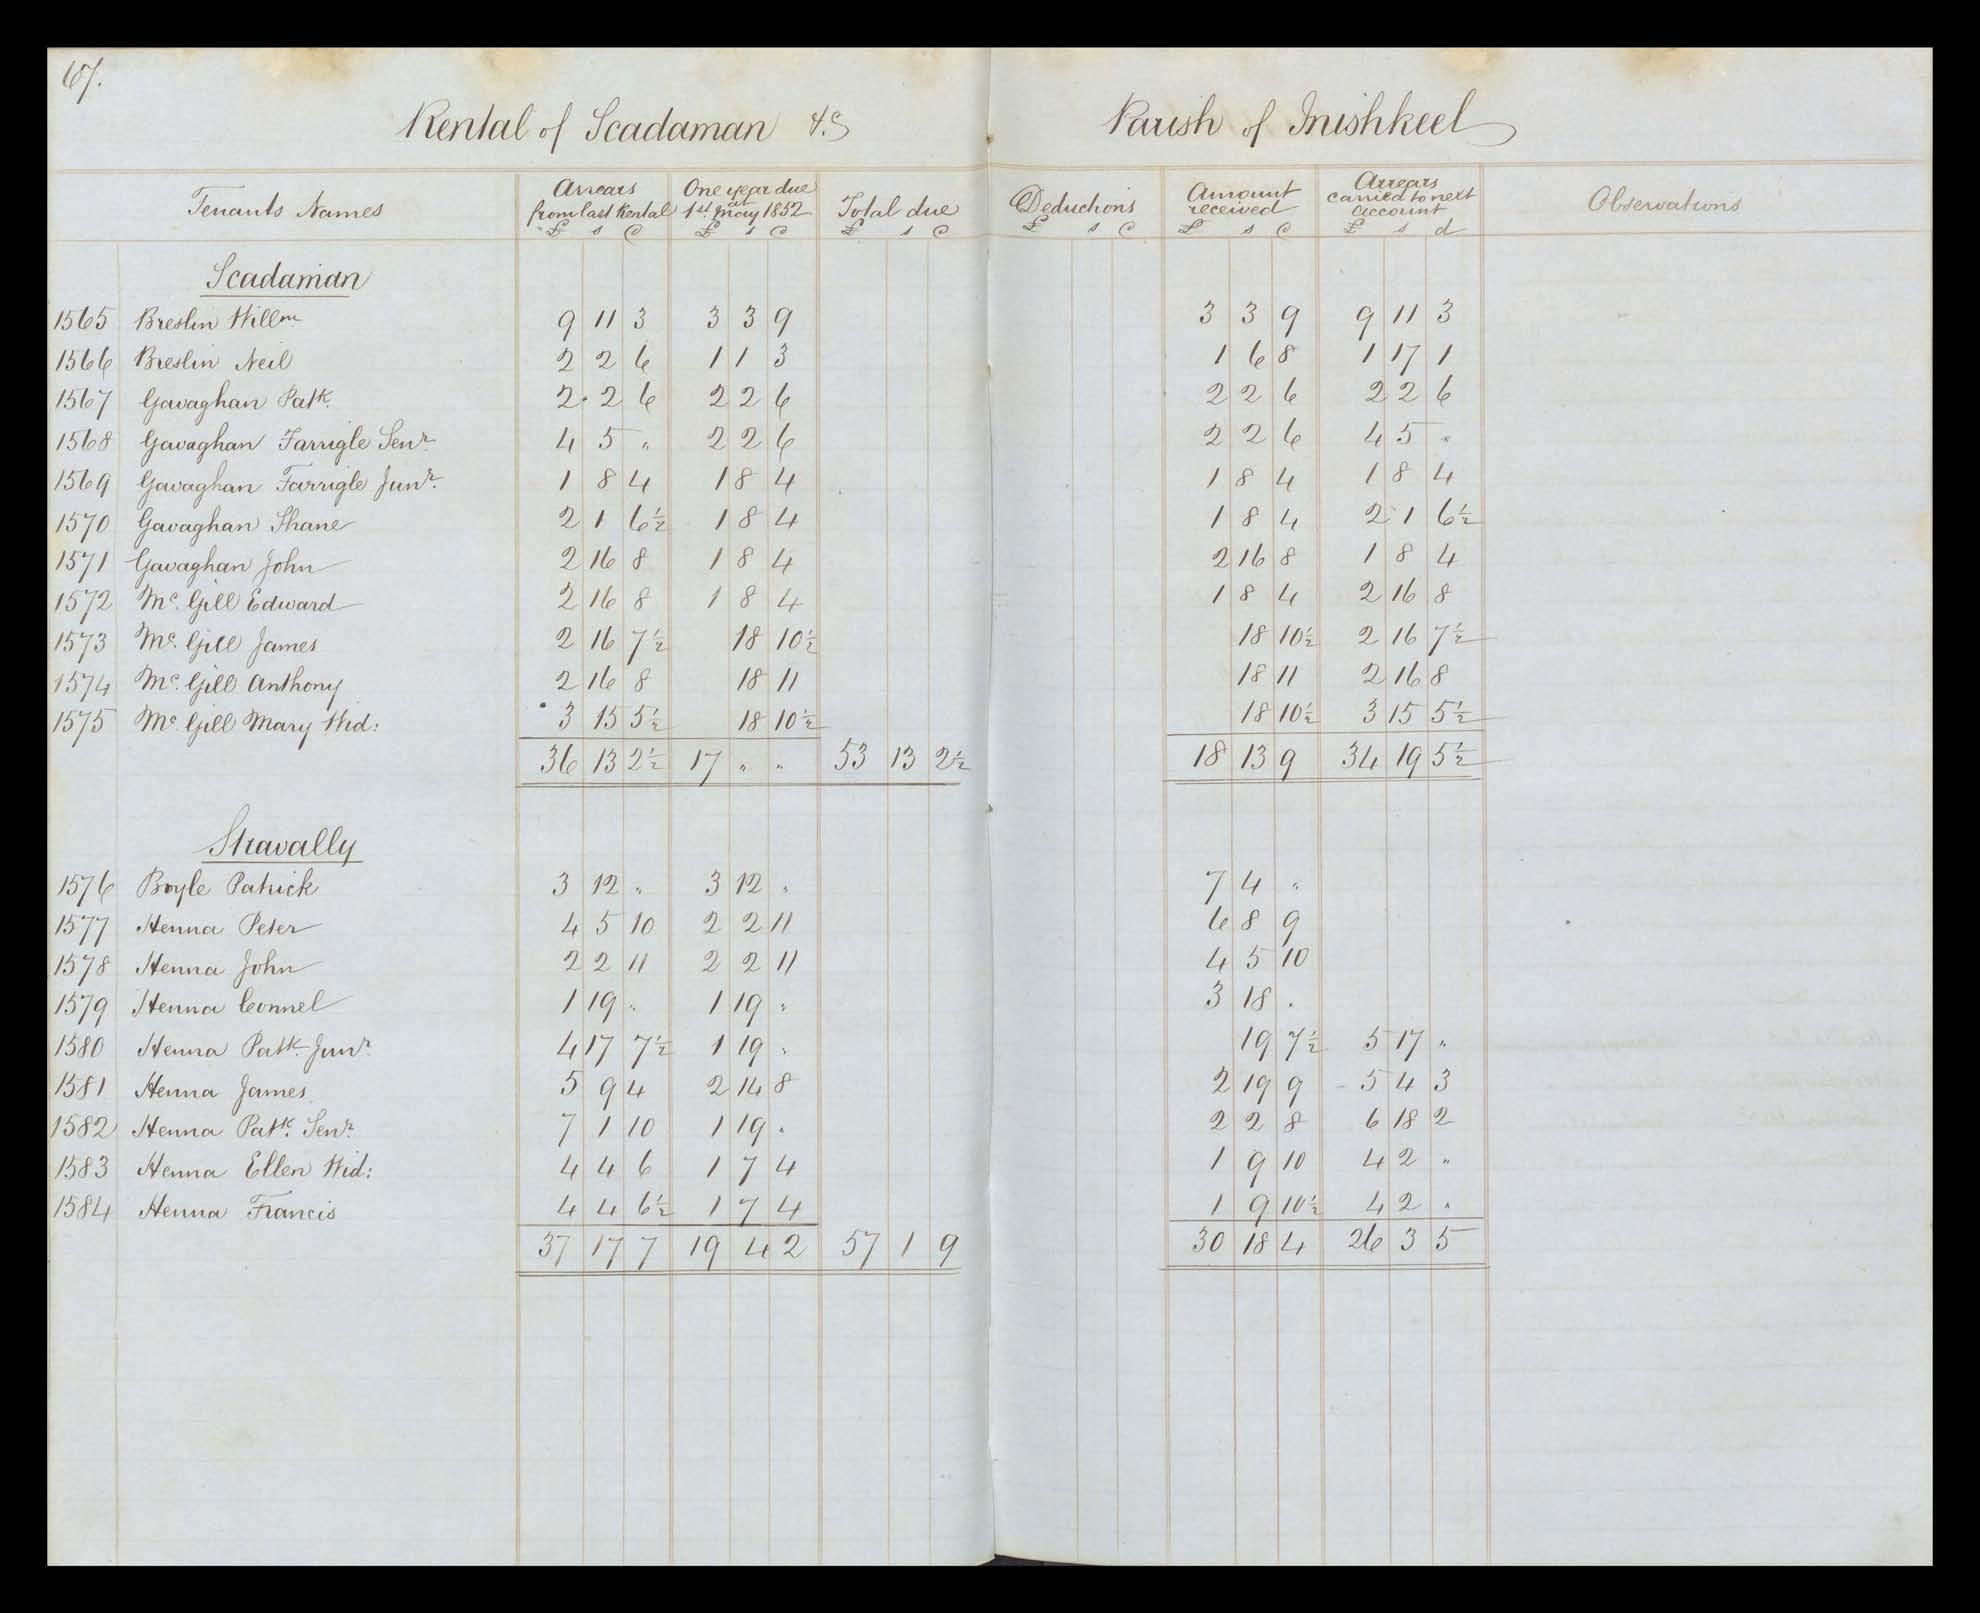 67.
Rental of Scadaman &c Parish of Inishkeel
Tenants Names | Arrears from last Rental £ s d | One year due at 1st May 1852 £ s d | Total due £ s d | Deductions £ s d | Amount received £ s d | Arrears carried to next account £ s d | Observations
Scadaman
1565 Breslin Willm 9 11 3 3 3 9 3 3 9 9 11 3
1566 Breslin Neil 2 2 6 1 1 3 1 6 8 1 17 1
1567 Gavaghan Patk. 2 2 6 2 2 6 2 2 6 2 2 6
1568 Gavaghan Farrigle Senr. 4 5 " 2 2 6 2 2 6 4 5 "
1569 Gavaghan Farrigle Junr. 1 8 4 1 8 4 1 8 4 1 8 4
1570 Gavaghan Shane 2 1 6½ 1 8 4 1 8 4 2 1 6½
1571 Gavaghan John 2 16 8 1 8 4 2 16 8 1 8 4
1572 Mc. Gill Edward 2 16 8 1 8 4 1 8 4 2 16 8
1573 Mc. Gill James 2 16 7½ 18 10½ 18 10½ 2 16 7½
1574 Mc. Gill Anthony 2 16 8 18 11 18 11 2 16 8
1575 Mc Gill Mary Wid: 3 15 5½ 18 10½ 18 10½ 3 15 5½
36 13 2½ 17 " " 53 13 2½ 18 13 9 34 19 5½
Stravally
1576 Boyle Patrick 3 12 " 3 12 " 7 4 "
1577 Henna Peter 4 5 10 2 2 11 6 8 9
1578 Henna John 2 2 11 2 2 11 4 5 10
1579 Henna Connel 1 19 " 1 19 " 3 18 "
1580 Henna Patk. Junr. 4 17 7½ 1 19 " 19 7½ 5 17 "
1581 Henna James 5 9 4 2 14 8 2 19 9 5 4 3
1582 Henna Patk. Senr. 7 1 10 1 19 " 2 2 8 6 18 2
1583 Henna Ellen Wid: 4 4 6 1 7 4 1 9 10 4 2 "
1584 Henna Francis 4 4 6½ 1 7 4 1 9 10½ 4 2 "
37 17 7 19 4 2 57 1 9 30 18 4 26 3 5